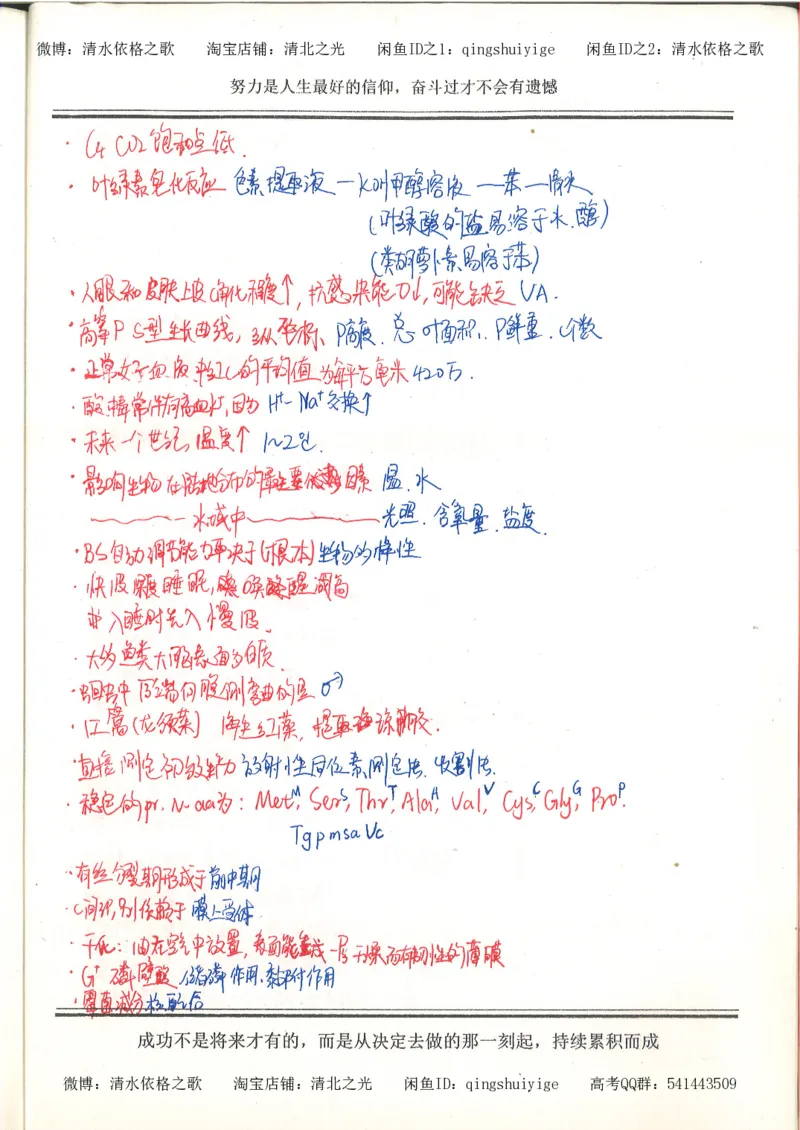 微博：清水依格之歌 淘宝店铺：清北之光 闲鱼ID之1：qingshuiyige 闲鱼ID之2：清水依格之歌
努力是人生最好的信仰，奋斗过才不会有遗憾
· C4 CO2饱和点低.
· 叶绿素皂化反应 色素提取液 — KOH甲醇溶液 — 苯 —
(叶绿酸的盐易溶于水.醇)
(类胡萝卜素易溶于苯)
· 人眼和皮肤上皮角化程度↑, 抗感染能力↓, 可能缺乏 VA.
· 高等P S型生长曲线, 纵坐标、P高度. 总叶面积. P鲜重. C个数
· 正常女子血液中红C的平均值为每立方毫米420万.
· 酸中毒常伴有高血K+, 因为 H+- Na+交换↑
· 未来一个世纪, 温度↑ 1~2℃.
· 影响生物在陆地分布的最主要因素 温.水
水域中 光照. 含氧量. 盐度.
· BS自动调节能力取决于(根本)生物的多样性
· 快波睡眠, 唤醒阈高
入睡时先入慢波.
· 大多鱼类大脑表面为白质.
· 蛔虫中 尾端向腹侧弯曲的是 ♂
· 江蓠(龙须菜) 海生红藻, 提取琼脂胶.
· 直接测定初级生产力 放射性同位素测定法. 收割法.
· 稳定的pr. N-aa为: Met M, Ser S, Thr T, Ala A, Val V, Cys C, Gly G, Pro P.
TgpmsaVc
· 有丝分裂期形成于前中期
· C间识别依赖于 膜上受体.
· 干化: 油在空气中放置, 表面能生成一层干燥而有韧性的薄膜
· G+ 磷壁酸 储磷作用. 黏附作用
· 减分核配合
成功不是将来才有的，而是从决定去做的那一刻起，持续累积而成
微博：清水依格之歌 淘宝店铺：清北之光 闲鱼ID：qingshuiyige 高考QQ群：541443509